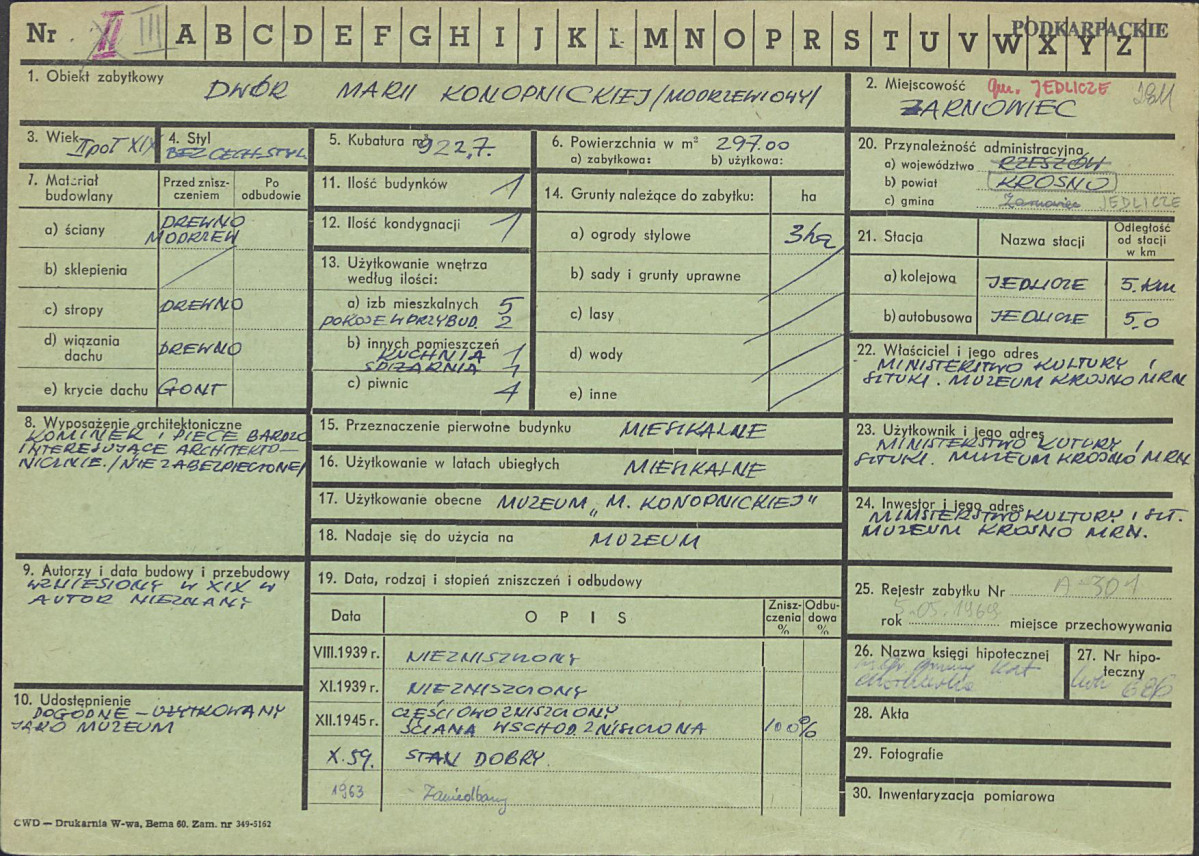 Nr II III A B C D E F G H I J K L M N O P R S T U V W X Y Z PODKARPACKIE
1. Obiekt zabytkowy
DWÓR MARII KONOPNICKIEJ /MODRZEWIOWY/
2. Miejscowość gm. JEDLICZE
ŻARNOWIEC
3. Wiek II poł XIX
4. Styl
BEZ CECH STYL
5. Kubatura m³ 922,7.
6. Powierzchnia w m² 297.00
a) zabytkowa: b) użytkowa:
20. Przynależność administracyjna
a) województwo RZESZÓW
b) powiat KROSNO
c) gmina Żarnowiec JEDLICZE
7. Materiał budowlany
Przed zniszczeniem
Po odbudowie
a) ściany DREWNO
MODRZEW
b) sklepienia
c) stropy DREWNO
d) wiązania dachu DREWNO
e) krycie dachu GONT
11. Ilość budynków 1
12. Ilość kondygnacji 1
13. Użytkowanie wnętrza
według ilości:
a) izb mieszkalnych 5
POKOJE W PRZYBUD. 2
b) innych pomieszczeń
KUCHNIA 1
SPIŻARNIA 1
c) piwnic 4
14. Grunty należące do zabytku: ha
a) ogrody stylowe 3ha
b) sady i grunty uprawne
c) lasy
d) wody
e) inne
21. Stacja Nazwa stacji Odległość od stacji w km
a) kolejowa JEDLICZE 5.km
b) autobusowa JEDLICZE 5.0
22. Właściciel i jego adres
MINISTERSTWO KULTURY I
SZTUKI. MUZEUM KROSNO MRN
8. Wyposażenie architektoniczne
KOMINEK I PIECE BARDZO
INTERESUJĄCE ARCHITEKTO–
NICZNIE. /NIEZABEZPIECZONE/
15. Przeznaczenie pierwotne budynku MIESZKALNE
16. Użytkowanie w latach ubiegłych MIESZKALNE
17. Użytkowanie obecne MUZEUM „M. KONOPNICKIEJ"
18. Nadaje się do użycia na MUZEUM
23. Użytkownik i jego adres
MINISTERSTWO KUTURY I
SZTUKI. MUZEUM KROSNO MRN.
24. Inwestor i jego adres
MINISTERSTWO KULTURY I SZT.
MUZEUM KROSNO MRN.
9. Autorzy i data budowy i przebudowy
WZNIESIONY W XIX W
AUTOR NIEZNANY
19. Data, rodzaj i stopień zniszczeń i odbudowy
Data OPIS Zniszczenia % Odbudowa %
VIII.1939 r. NIEZNISZCZONY
XI.1939 r. NIEZNISZCZONY
XII.1945 r. CZĘŚCIOWO ZNISZCZONY
ŚCIANA WSCHOD. ZNISZCZONA 100%
X.59. STAN DOBRY.
1963 Zaniedbany
25. Rejestr zabytku Nr A-301
rok 5.05.1969 miejsce przechowywania
26. Nazwa księgi hipotecznej
27. Nr hipoteczny
lwh 686
10. Udostępnienie
DOGODNE – UŻYTKOWANY
JAKO MUZEUM
28. Akta
29. Fotografie
30. Inwentaryzacja pomiarowa
CWD — Drukarnia W-wa, Bema 60. Zam. nr 349-5162